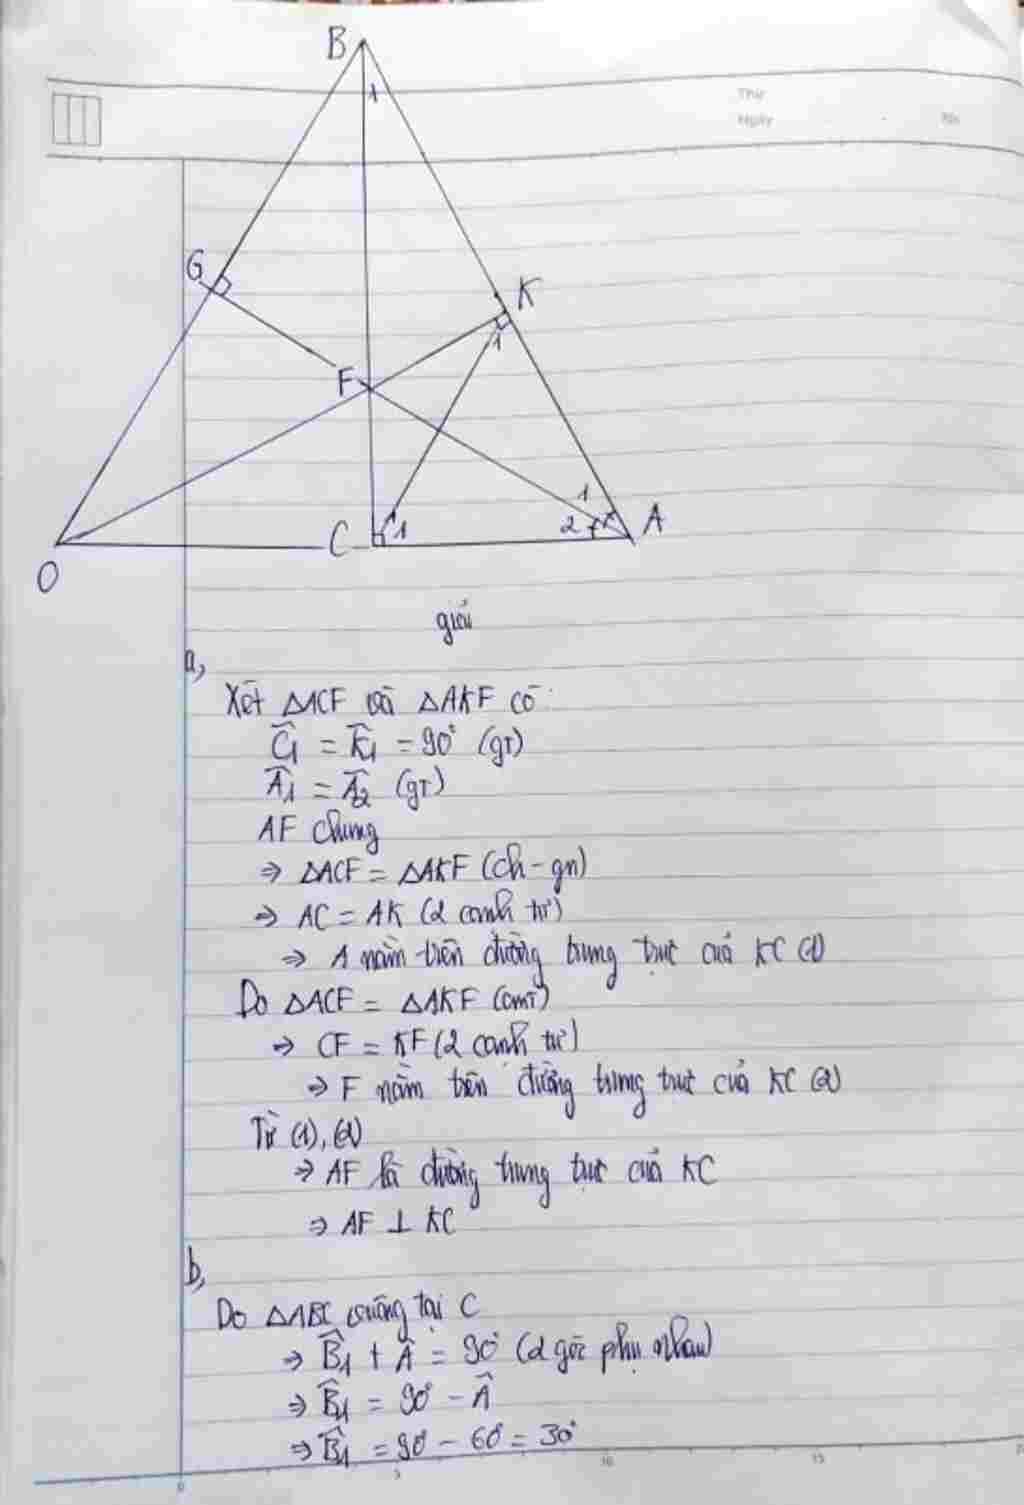 B
1
Thứ
Ngày
No
G
K
1
F
1
2
A
C
1
O
giải
a,
Xét ΔACF và ΔAKF có:
Ĉ₁ = K̂₁ = 90° (gt)
Â₁ = Â₂ (gt)
AF chung
⇒ ΔACF = ΔAKF (ch - gn)
⇒ AC = AK (2 cạnh tư)
⇒ A nằm trên đường trung trực của KC (1)
Do ΔACF = ΔAKF (cmt)
⇒ CF = KF (2 cạnh tư)
⇒ F nằm trên đường trung trực của KC (2)
Từ (1), (2)
⇒ AF là đường trung trực của KC
⇒ AF ⊥ KC
b,
Do ΔABC vuông tại C
⇒ B̂₁ + Â = 90° (2 góc phụ nhau)
⇒ B̂₁ = 90° - Â
⇒ B̂₁ = 90° - 60° = 30°
0 5 10 15